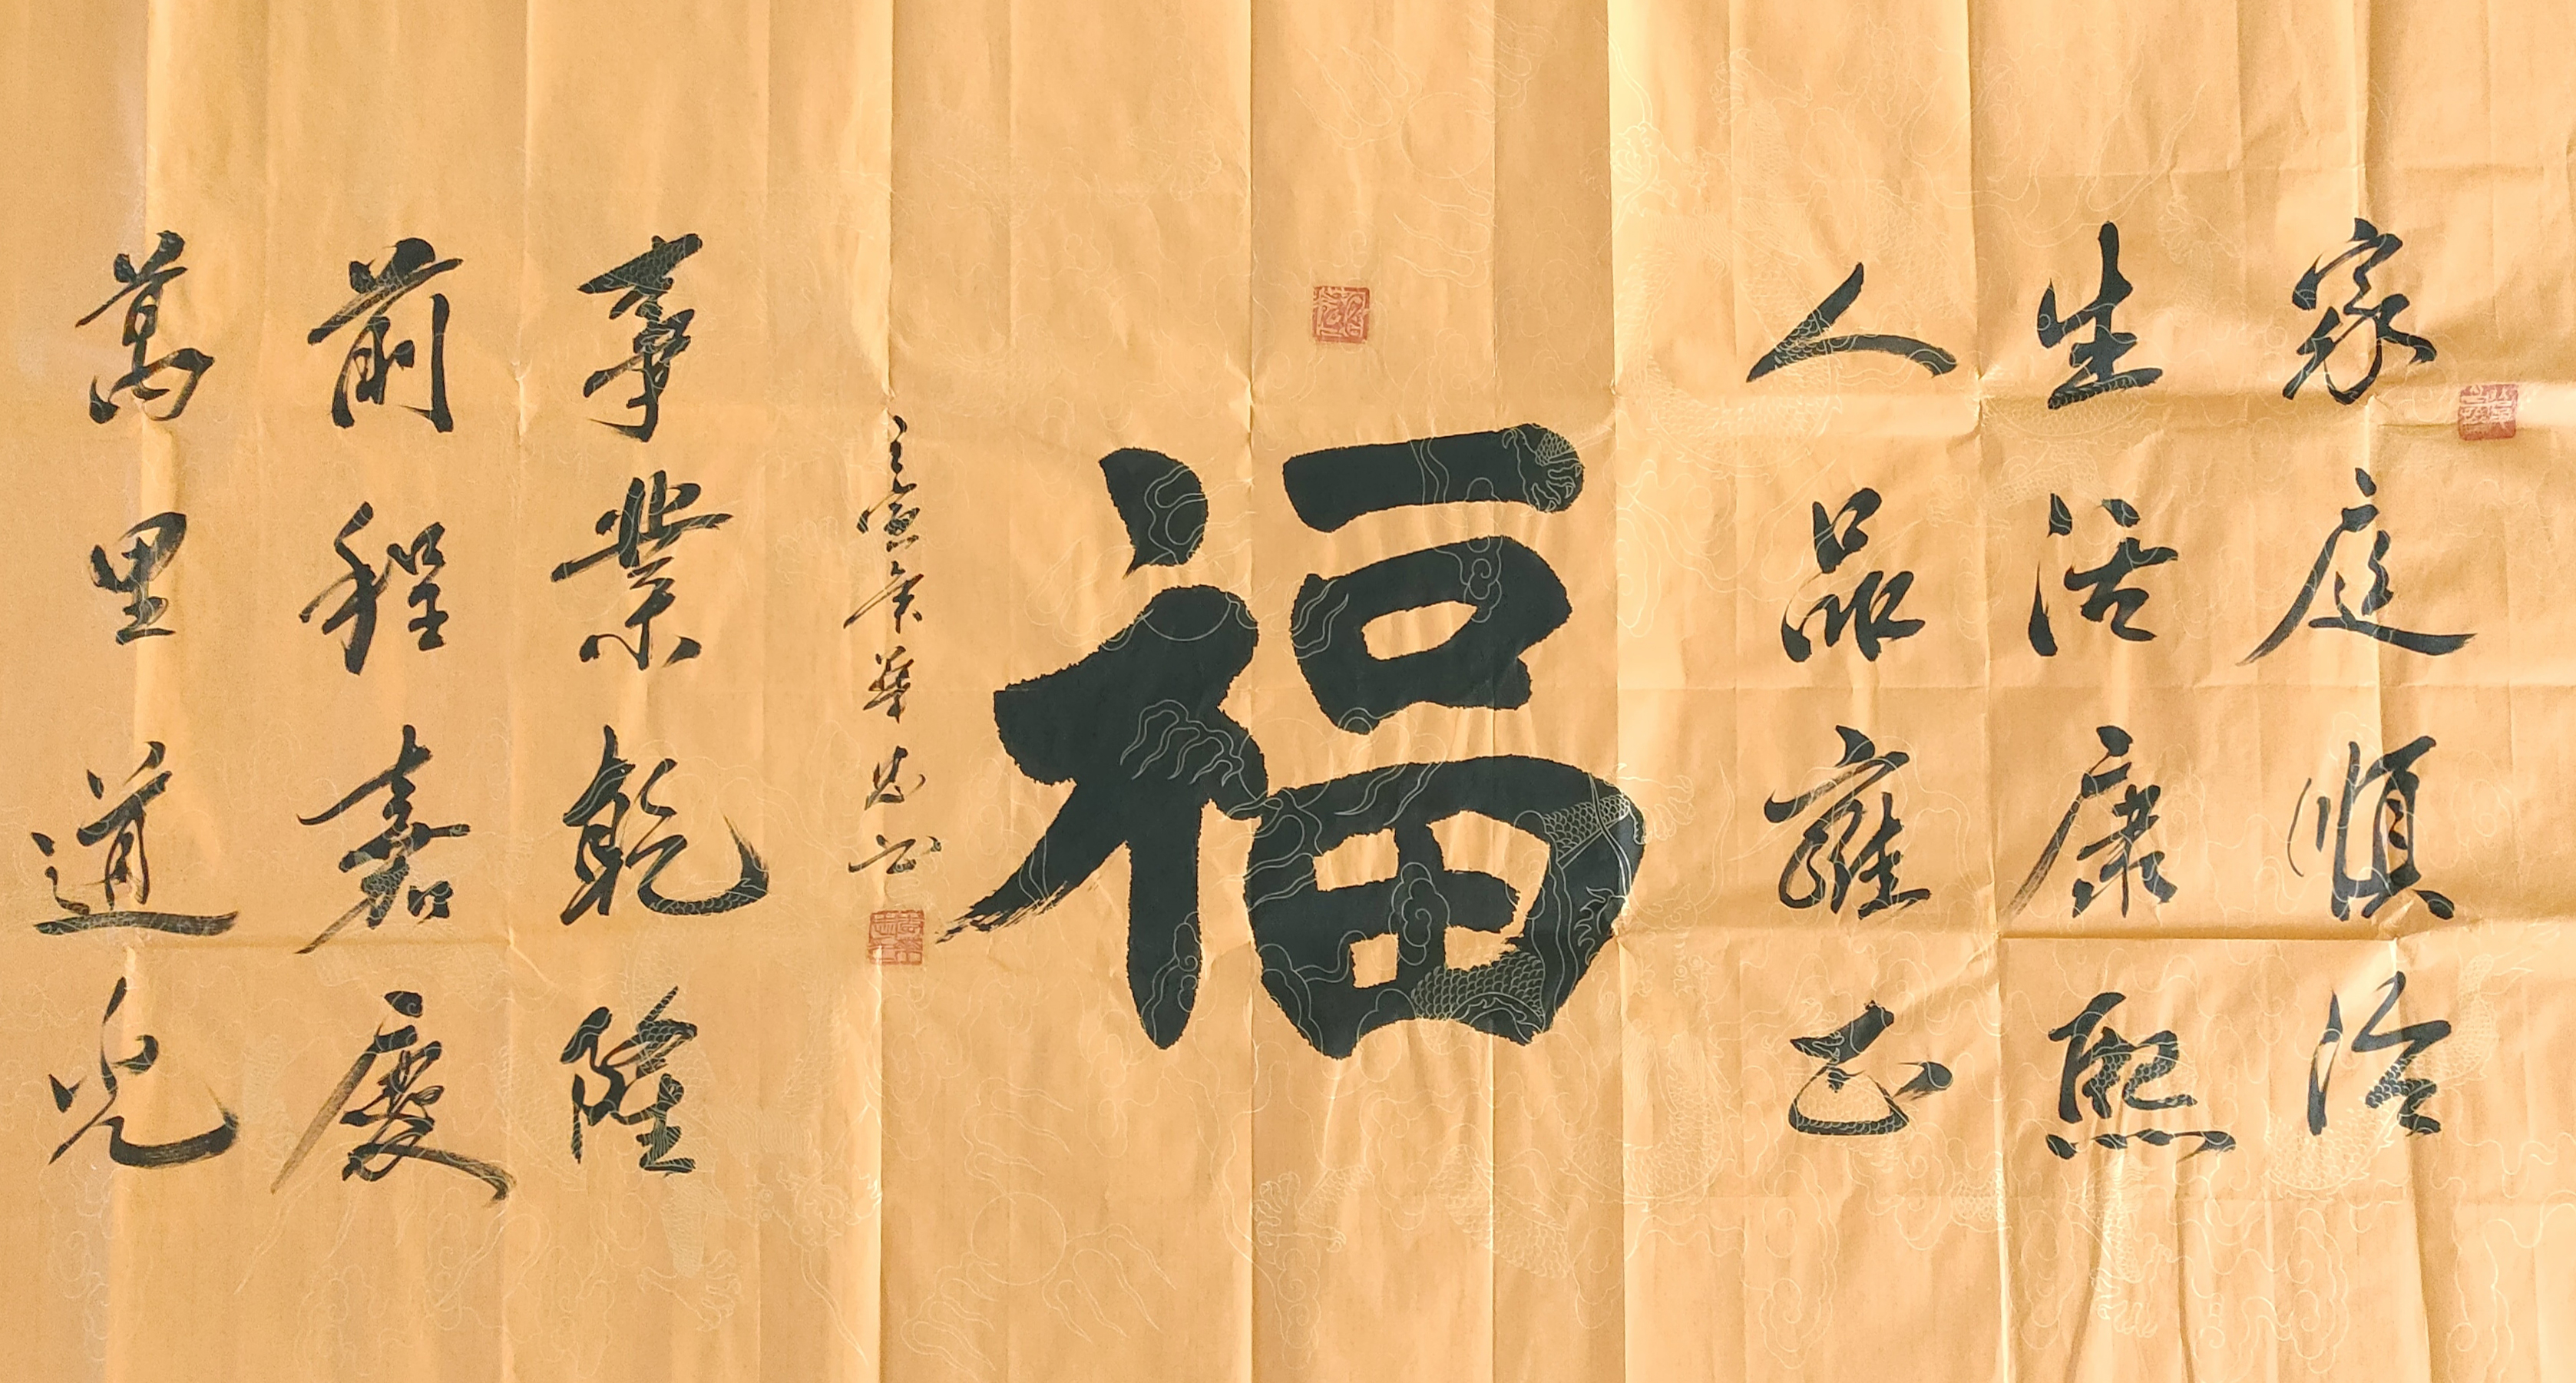 家庭順治
生活康熙
人品雍正
福
事業乾隆
前程嘉慶
萬里道光